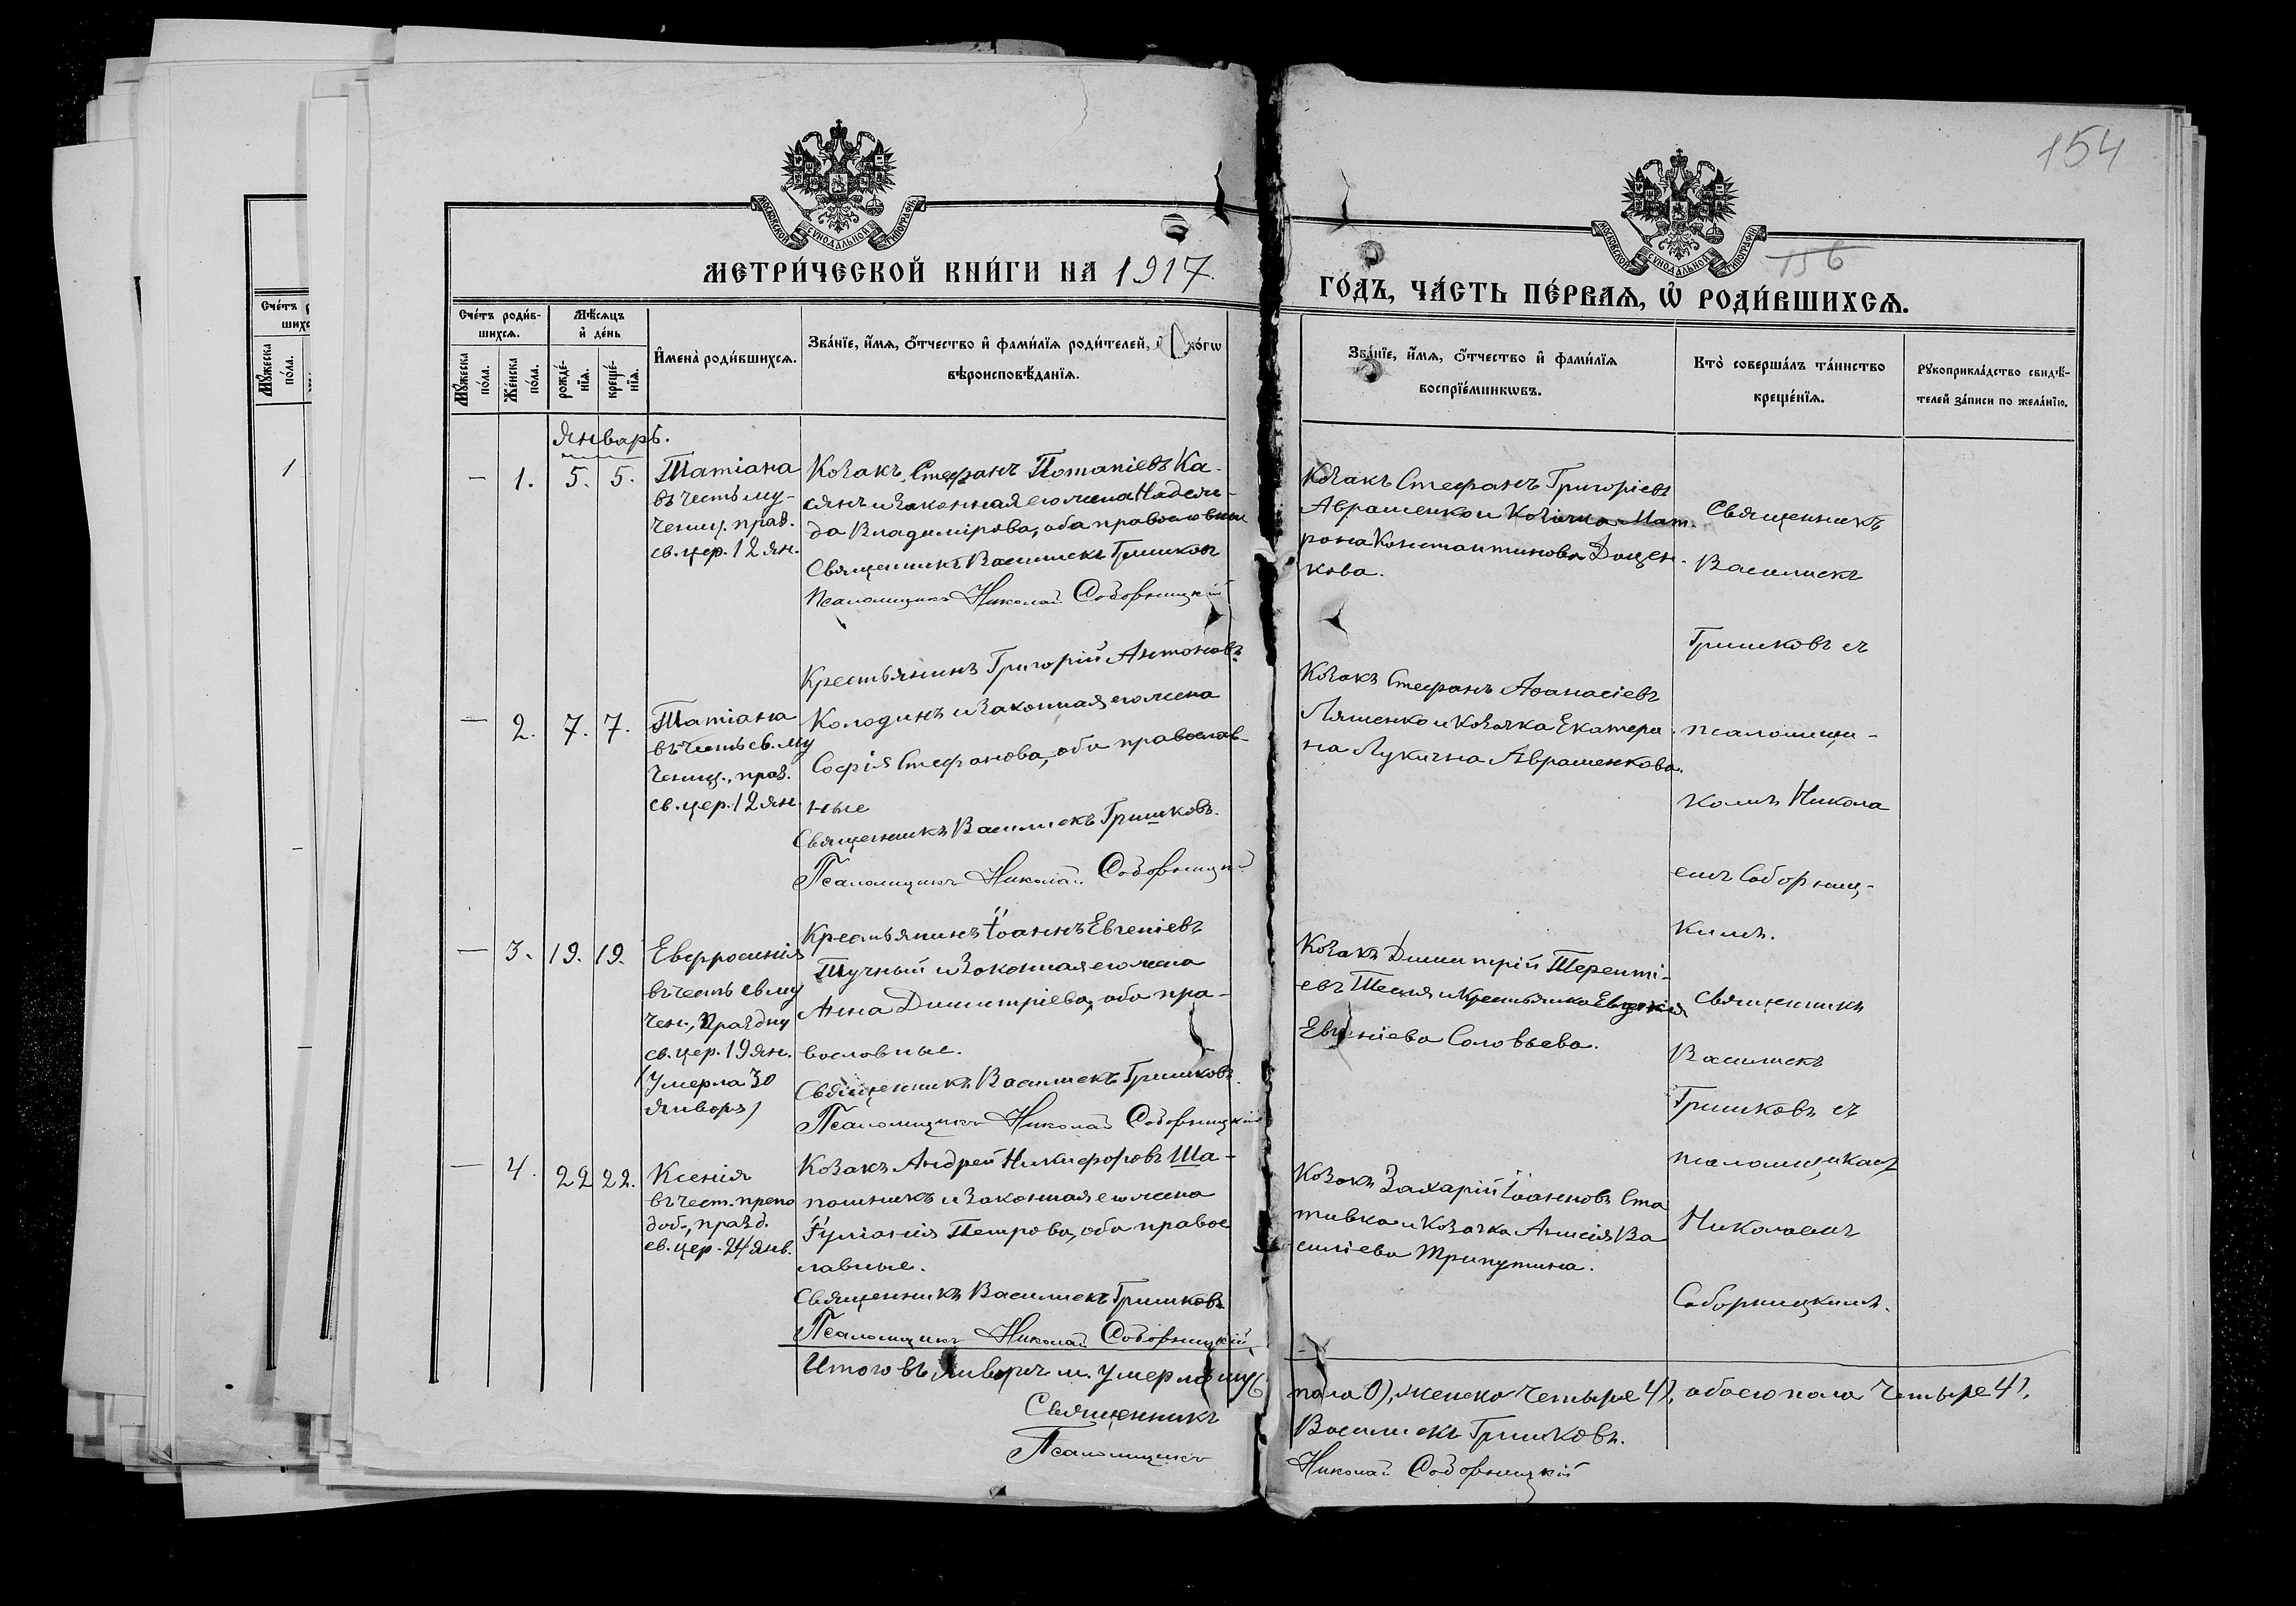 154
156
МОСКОВСКОЙ СѴНОДАЛЬНОЙ ТИПОГРАФІИ
МОСКОВСКОЙ СѴНОДАЛЬНОЙ ТИПОГРАФІИ
МЕТРИ́ЧЕСКОЙ КНИ́ГИ НА 1917.
ГО́ДЪ, ЧА́СТЬ ПЕ́РВАѦ, Ѽ РОДИ́ВШИХСѦ.
Сче́тъ
шихс
Мꙋ́жеска
по́ла.
1
Сче́тъ роди́в-
шихсѧ.
Мꙋ́жеска
по́ла.
Же́нска
по́ла.
Мѣ́сѧцъ
и҆ де́нь
рожде́-
нїѧ.
креще́-
нїѧ.
И҆мена̀ роди́вшихсѧ.
Зва́нїе, и҆́мѧ, ѻ҆́тчество и҆ фами́лїѧ роди́телей, и҆ ко́гѡ
вѣроисповѣ́данїѧ.
Зва́нїе, и҆́мѧ, ѻ҆́тчество и҆ фами́лїѧ
воспрїе́мникѡвъ.
Кто̀ соверша́лъ та́инство
креще́нїѧ.
Рꙋкоприкла́дство свидѣ́-
телей за́писи по жела́нїю.
Январь.
— 1. 5. 5.
Татіана
въ честь му-
чениц. празд.
св. цер. 12 ян.
Козакъ Стефанъ Потапіевъ Ка-
сянъ и законная его жена Надеж-
да Владимірова, оба православные
Священникъ Василискъ Гришковъ
Псаломщикъ Николай Соборницкій
Козакъ Стефанъ Григоріевъ
Авраменко и козачка Мат-
рона Константинова Доцен-
кова.
Священникъ
Василискъ
Гришковъ съ
псаломщи-
комъ Никола
емъ Соборниц-
кимъ.
— 2. 7. 7.
Татіана
въ честь св. му
чениц., празд.
св. цер. 12 ян.
Крестьянинъ Григорій Антоновъ
Колодинъ и законная его жена
Софія Стефанова, оба православ-
ные
Священникъ Василискъ Гришковъ.
Псаломщикъ Николай Соборницкій
Козакъ Стефанъ Аѳанасіевъ
Ляшенко и козачка Екатери-
на Лукична Авраменкова.
— 3. 19. 19.
Евфросинія
въ честь св. му
чен., праздну
св. цер. 19 ян.
(Умерла 30
января)
Крестьянинъ Іоаннъ Евгеніевъ
Тучный и законная его жена
Анна Димитріева, оба пра-
вославные.
Священникъ Василискъ Гришковъ.
Псаломщикъ Николай Соборницкій
Козакъ Димитрій Теренті-
евъ Тесля и крестьянка Евдокія
Евгеніева Соловьева.
Священникъ
Василискъ
Гришковъ съ
псаломщикомъ
Николаемъ
Соборницкимъ.
— 4. 22 22.
Ксенія
въ чест. препо
доб., празд.
св. цер. 24 янв.
Козакъ Андрей Никифоровъ Ша-
пошникъ и законная его жена
Іуліанія Петрова, оба правос
лавные.
Священникъ Василискъ Гришковъ
Псаломщикъ Николай Соборницкій
Козакъ Захарій Іоанновъ Ста
тивка и козачка Анисія Ва
силіева Трипутина.
Итого въ январѣ м. умерло муж
пола 0), женска четыре 4), обоего пола четыре 4).
Священникъ Василискъ Гришковъ.
Псаломщикъ Николай Соборницкій